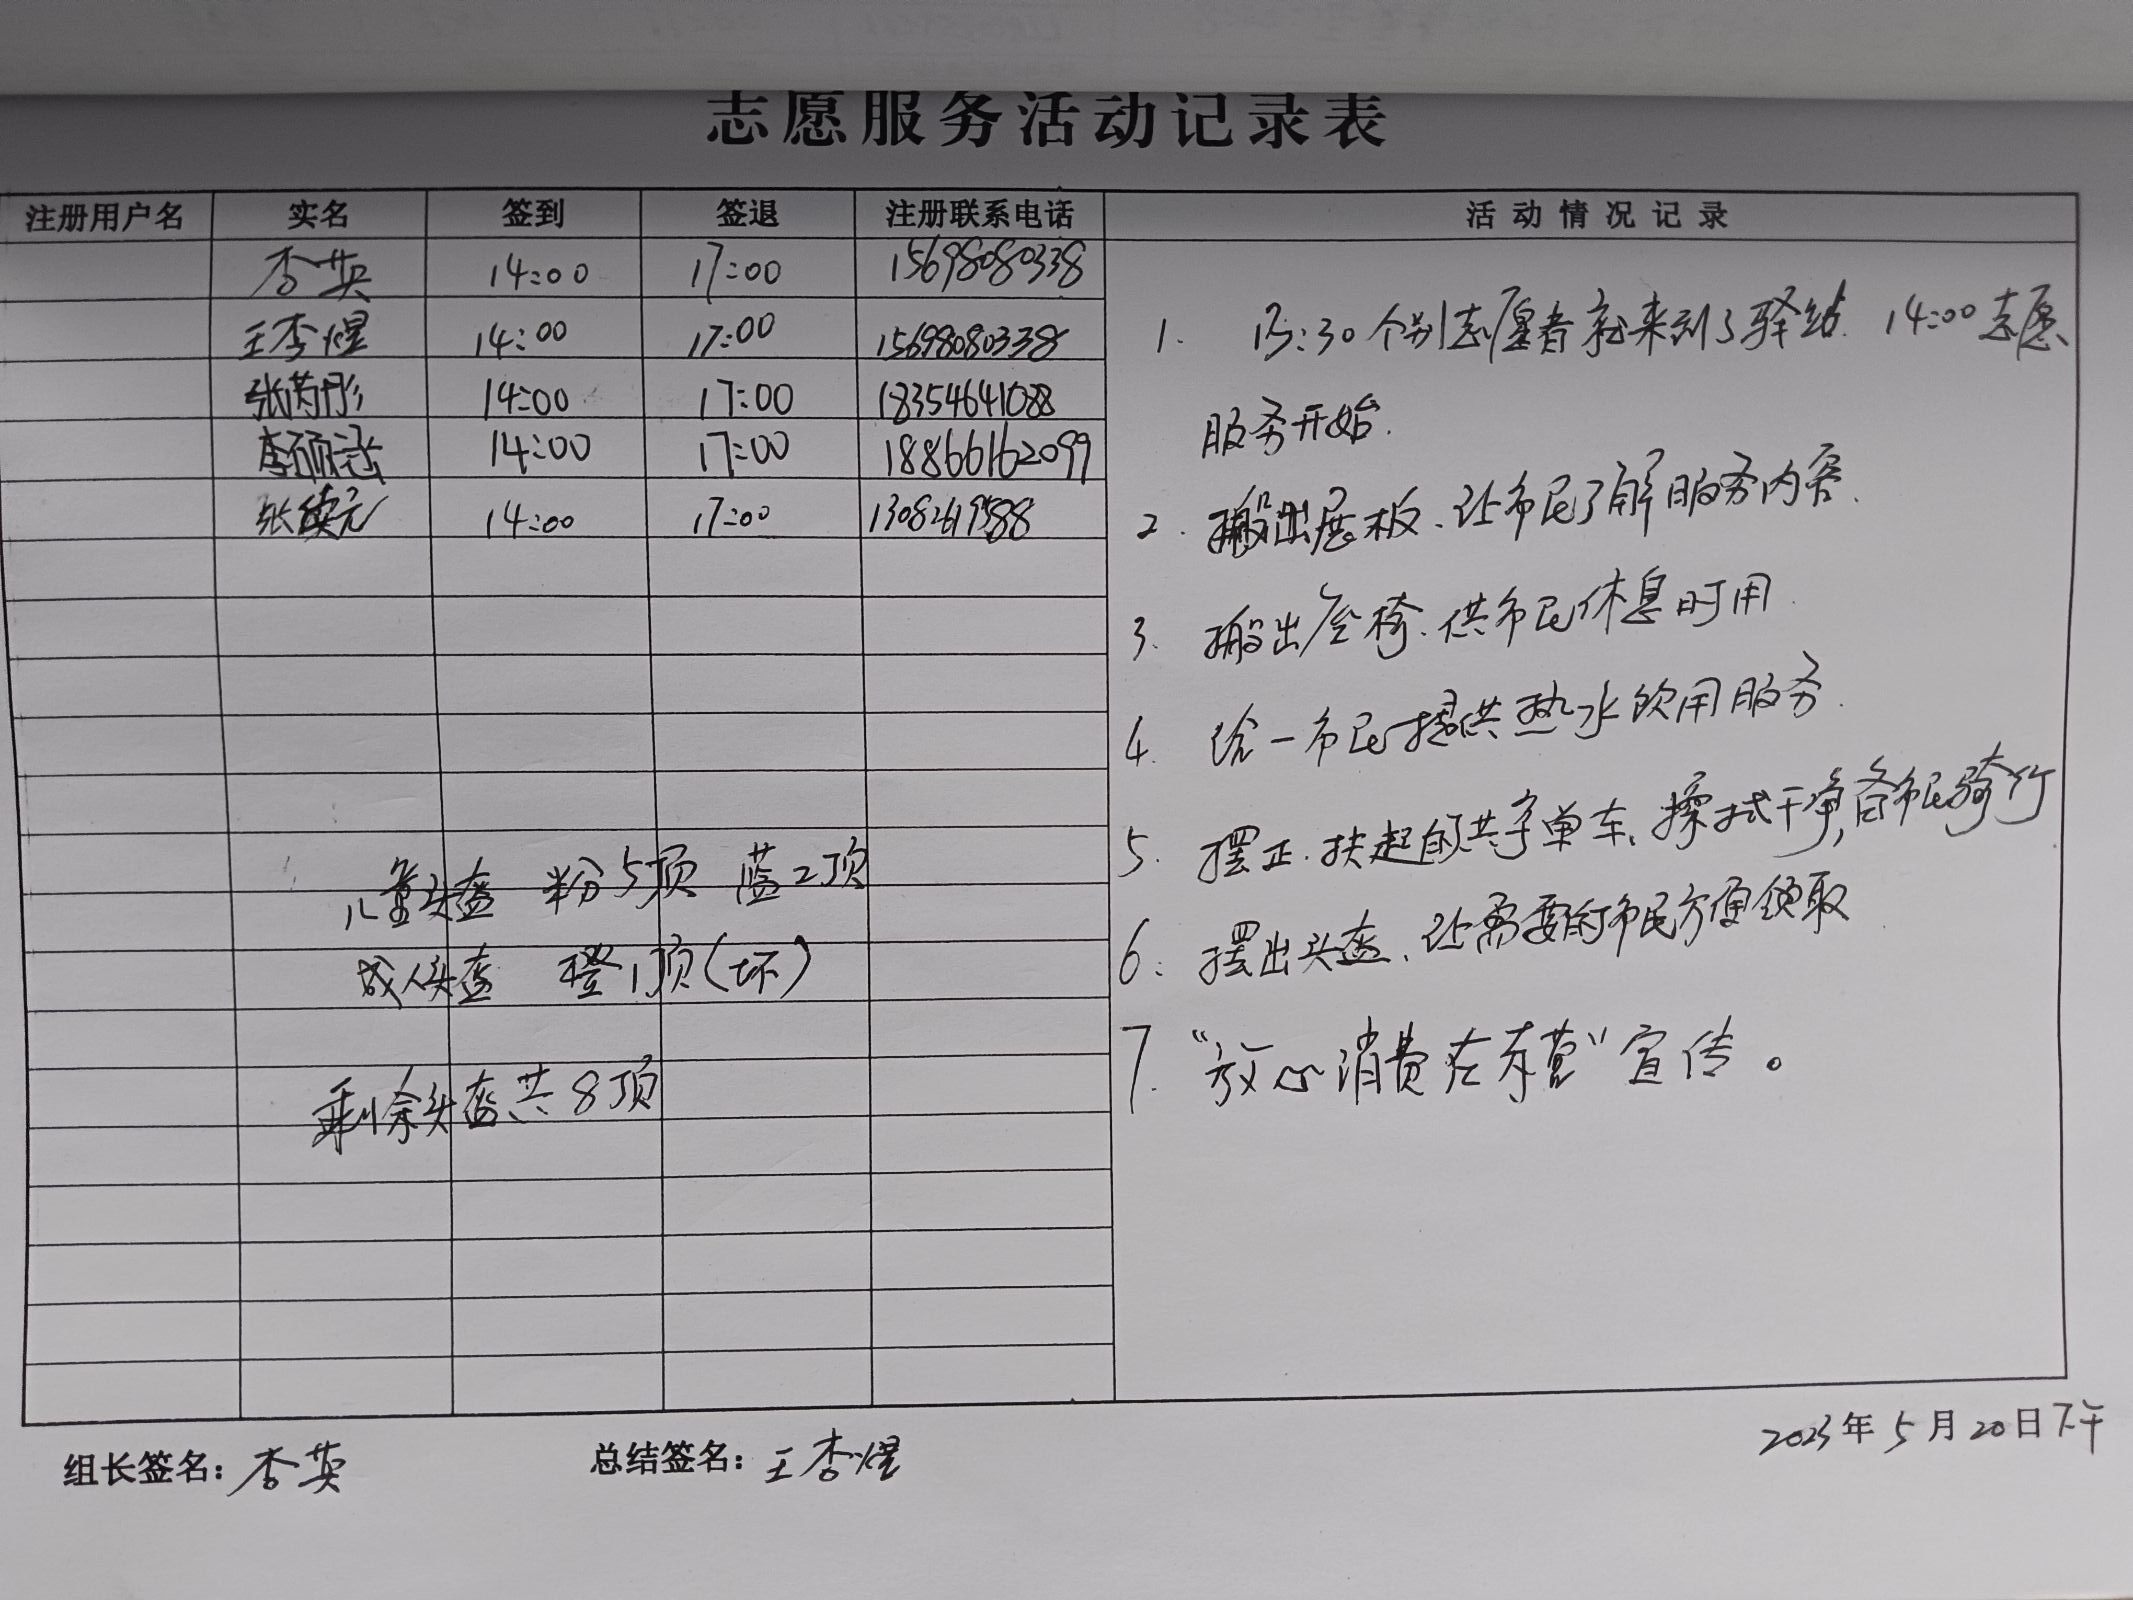 志愿服务活动记录表
注册用户名 实名 签到 签退 注册联系电话 活动情况记录
李英 14:00 17:00 15698080338
王李煜 14:00 17:00 15698080338
张芮彤 14:00 17:00 18354641088
李硕冠 14:00 17:00 18866162099
张续元 14:00 17:00
儿童头盔 粉5顶 蓝2顶
成人头盔 橙1顶(坏)
剩余头盔共8顶
1. 13:30个别志愿者就来到了驿站. 14:00志愿
服务开始.
2. 搬出展板、让市民了解服务内容.
3. 搬出座椅、供市民休息时用.
4. 给市民提供热水饮用服务.
5. 摆正、扶起的共享单车、擦拭干净,备市民骑行
6. 摆出头盔、让需要的市民方便领取
7. “放心消费在东营”宣传。
组长签名: 李英 总结签名: 王李煜 2023年5月20日下午